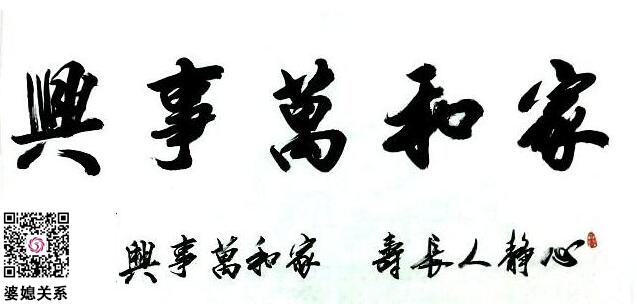 家和萬事興
心静人長壽 家和萬事興
婆媳关系